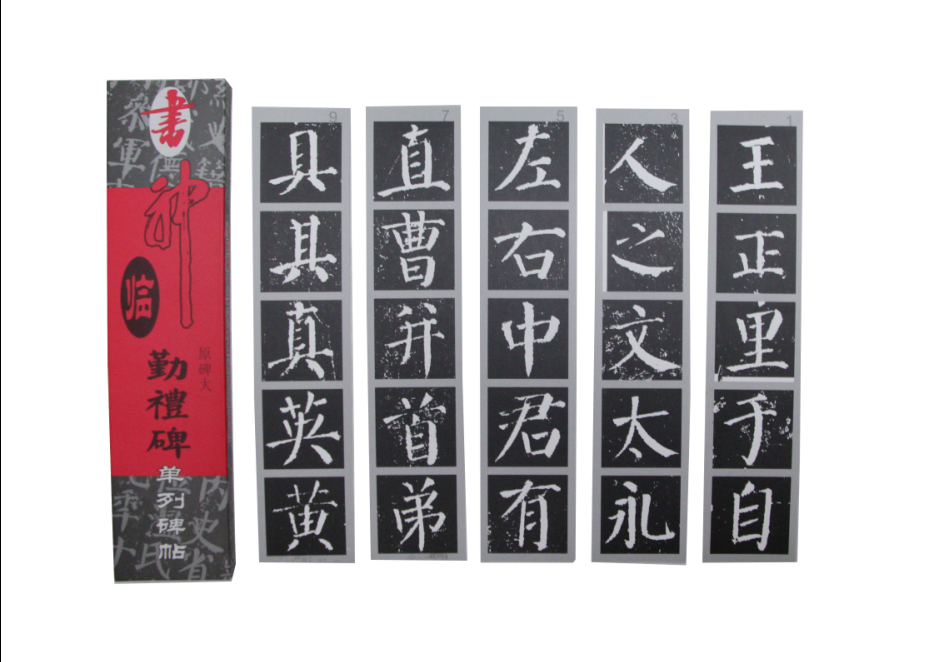 書神
临
勤禮碑
原碑大
单列碑帖
1
王正里于自
3
人之文太永
5
左右中君有
7
直曹并首弟
9
具其真英黄